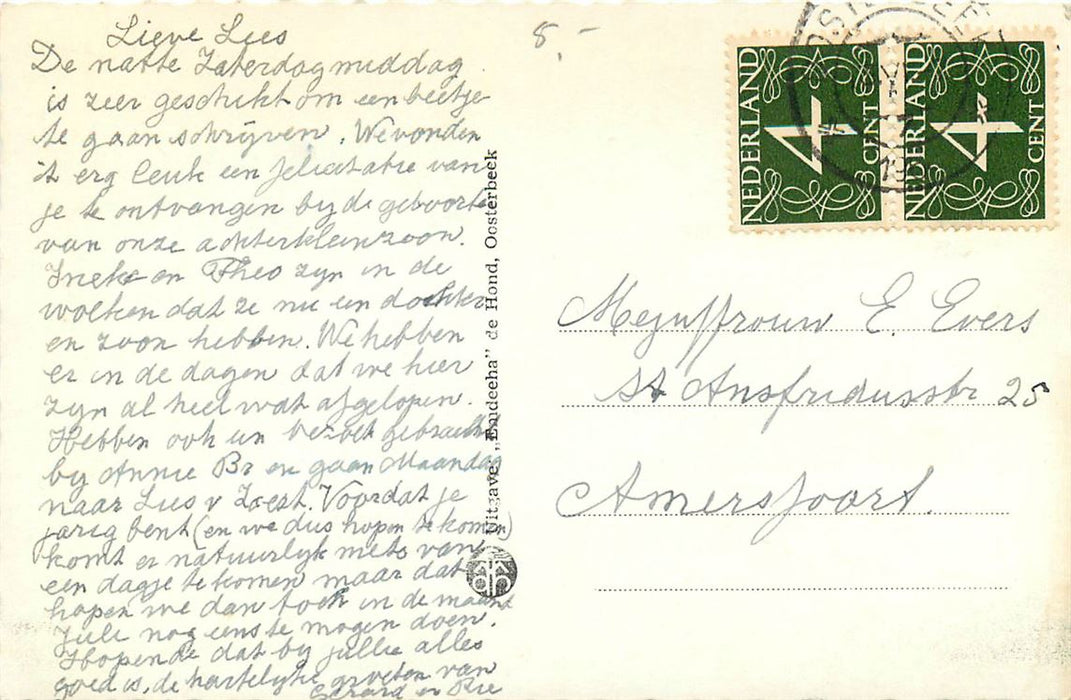 Lieve Lies
De natte Zaterdagmiddag
is zeer geschikt om een beetje
te gaan schrijven. We vonden
it erg leuk een felicitatie van
je te ontvangen bij de geboorte
van onze achterkleinzoon.
Ineke en Theo zyn in de
wolken dat ze nu een dochter
en zoon hebben. We hebben
er in de dagen dat we hier
zyn al heel wat afgelopen.
Hebben ook un bezoek gebracht
by Annie Br en gaan Maandag
naar Lies v Zoest. Voordat je
jarig bent (en we dus hopen te komen)
komt er natuurlyk niets van
een dagje te komen maar dat
hopen we dan toch in de maand
Juli nog eens te mogen doen.
Hopende dat by jullie alles
goed is, de hartelyke groeten van
Gerard en Rie
8,-
Uitgave „Endeeha” de Hond, Oosterbeek
NEDERLAND
4
CENT
NEDERLAND
4
CENT
Mejuffrouw E. Evers
St Ansfridusstr 25
Amersfoort.